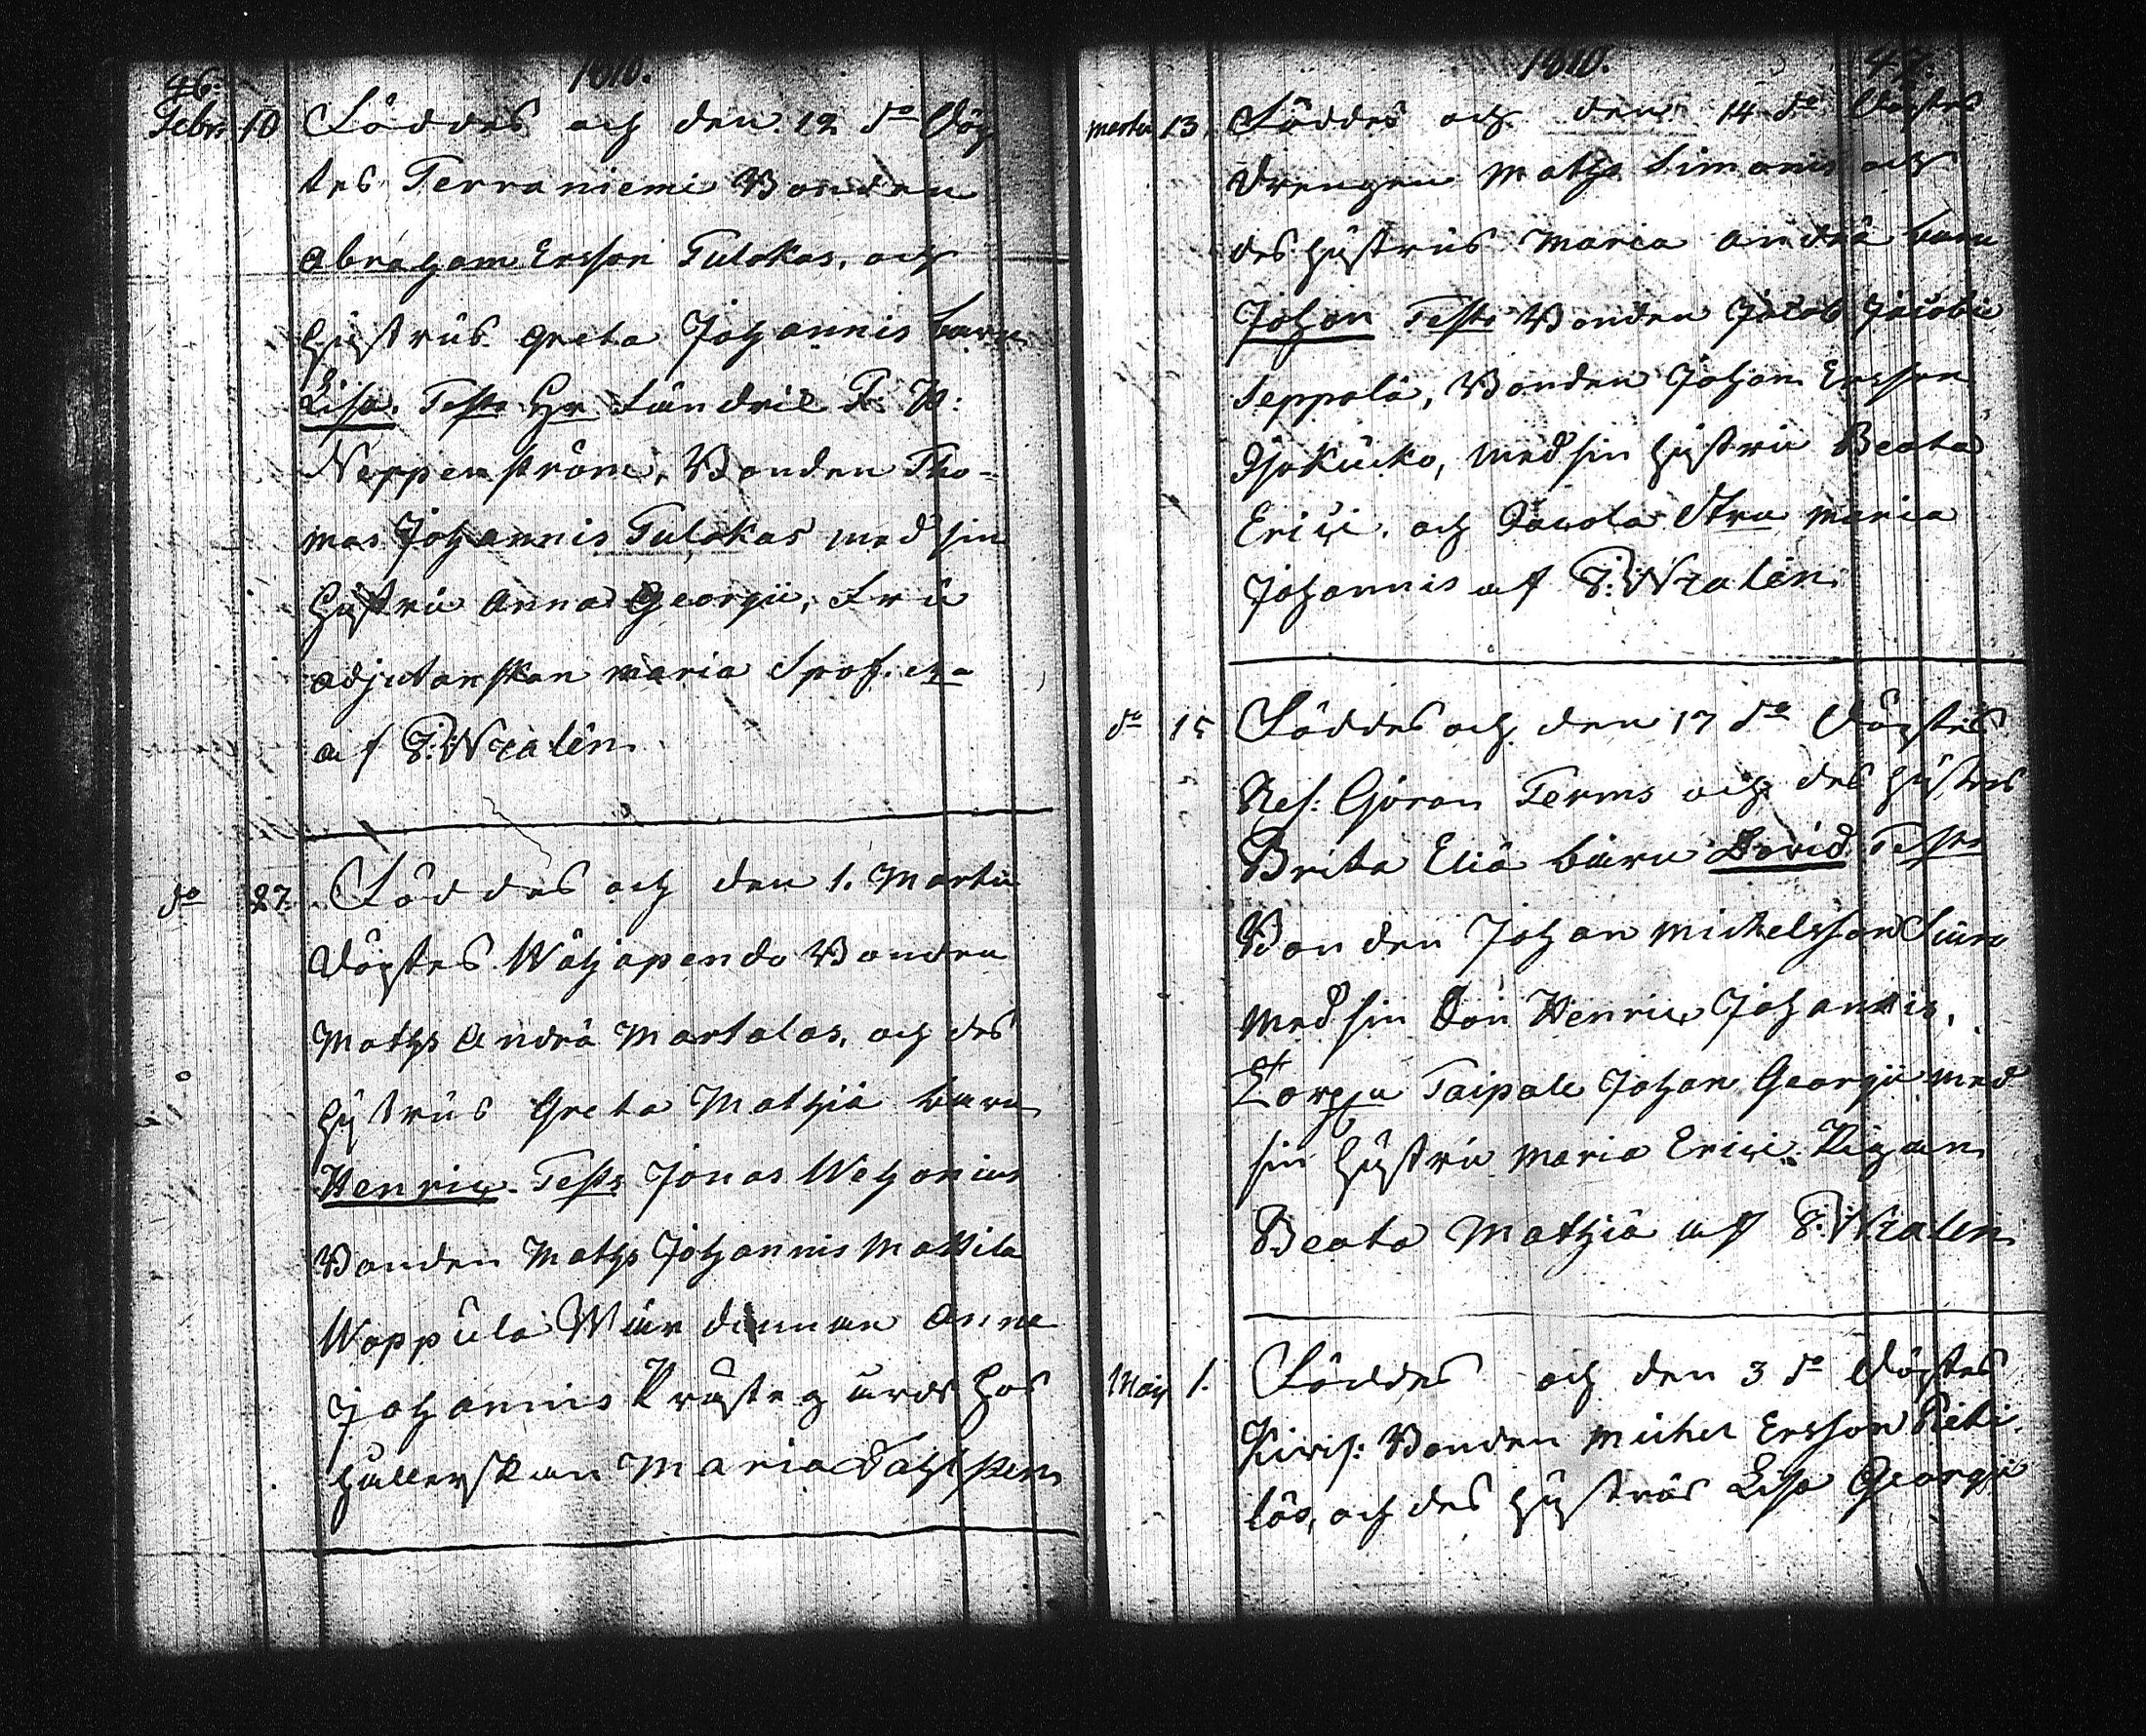 46.
1810.
Febr: 10 Föddes och den 12 do Döp
tes Terraniemi Bonden
Abraham Ersson Tulokas, och
Hustrus Greta Johannis barn
Lisa. Test: Hr Fändric P. W:
Neppenström, Bonden Tho-
mas Johannis Tulokas med sin
Hustru Anna Georgii, Fru
adjutanskan Maria Sprof.
af P: Wralén
do 27. Föddes och den 1. Martii
Döptes Wähäpendo Bonden
Maths Andrä Martalas, och des
Hustrus Greta Mathiä barn
Henric. Test: Jonas Wehonius
Bonden Maths Johannis Mattila
Woppula Wärdinnan Anna
Johannis Prästegårds hos
hållerskan Maria
1810.
47.
Martii 13. Föddes och den 14 do Döptes
Drengen Maths Simonis och
des hustrus Maria Andrä barn
Johan Test: Bonden Jacob Jacobi
Seppälä, Bonden Johan Ersson
Isokuko, med sin hustru Beata
Erici. och Maria
Johannis af P: Wralén
do 15 Föddes och den 17 do Döptes
Res: Göran Ferms och des hustrus
Brita Eliä barn David Test:
Bonden Johan Michelsson
med sin Son Henric Johannis.
Taipale Johan Georgii med
sin hustru Maria Erici. Pigan
Beata Mathiä af P: Wralén
Maij 1. Föddes och den 3 do Döptes
Bonden Michel Ersson Pieti
läs, och des hustrus Lisa Georgii